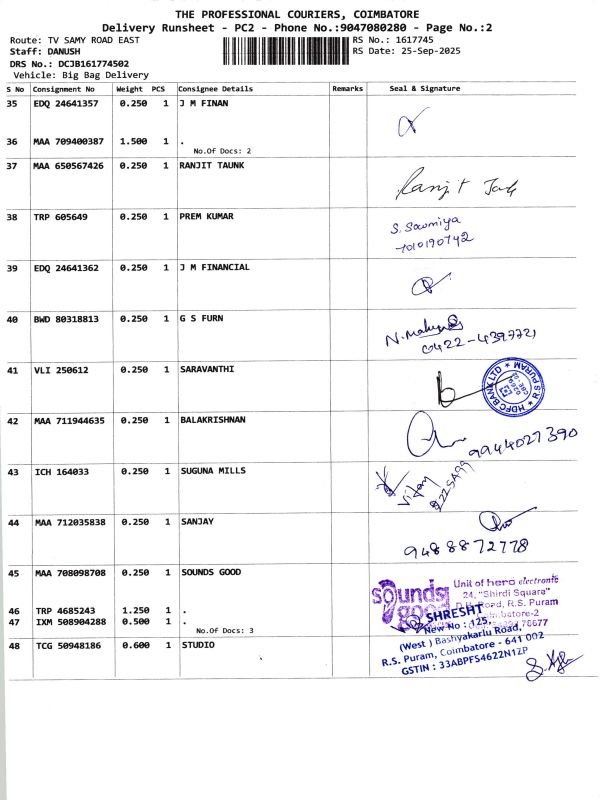 THE PROFESSIONAL COURIERS, COIMBATORE
Delivery Runsheet - PC2 - Phone No.:9047080280 - Page No.:2
Route: TV SAMY ROAD EAST
RS No.: 1617745
Staff: DANUSH
RS Date: 25-Sep-2025
DRS No.: DCJB161774502
Vehicle: Big Bag Delivery
S No Consignment No Weight PCS Consignee Details Remarks Seal & Signature
35 EDQ 24641357 0.250 1 J M FINAN
36 MAA 709400387 1.500 1 .
No.Of Docs: 2
37 MAA 650567426 0.250 1 RANJIT TAUNK
Ranjit
38 TRP 605649 0.250 1 PREM KUMAR
S. Sowmiya
7010190742
39 EDQ 24641362 0.250 1 J M FINANCIAL
40 BWD 80318813 0.250 1 G S FURN
0422-4397721
41 VLI 250612 0.250 1 SARAVANTHI
HDFC BANK LTD * R S PURAM *
42 MAA 711944635 0.250 1 BALAKRISHNAN
9944027390
43 ICH 164033 0.250 1 SUGUNA MILLS
Vijay
44 MAA 712035838 0.250 1 SANJAY
9488872778
45 MAA 708098708 0.250 1 SOUNDS GOOD
sounds good
Unit of hero electronic
24, "Shirdi Square"
Road, R.S. Puram
46 TRP 4685243 1.250 1 .
47 IXM 508904288 0.500 1 .
No.Of Docs: 3
SHRESHT
New No : 125,
(West ) Bashyakarlu Road,
R.S. Puram, Coimbatore - 641 002
GSTIN : 33ABPFS4622N1ZP
48 TCG 50948186 0.600 1 STUDIO